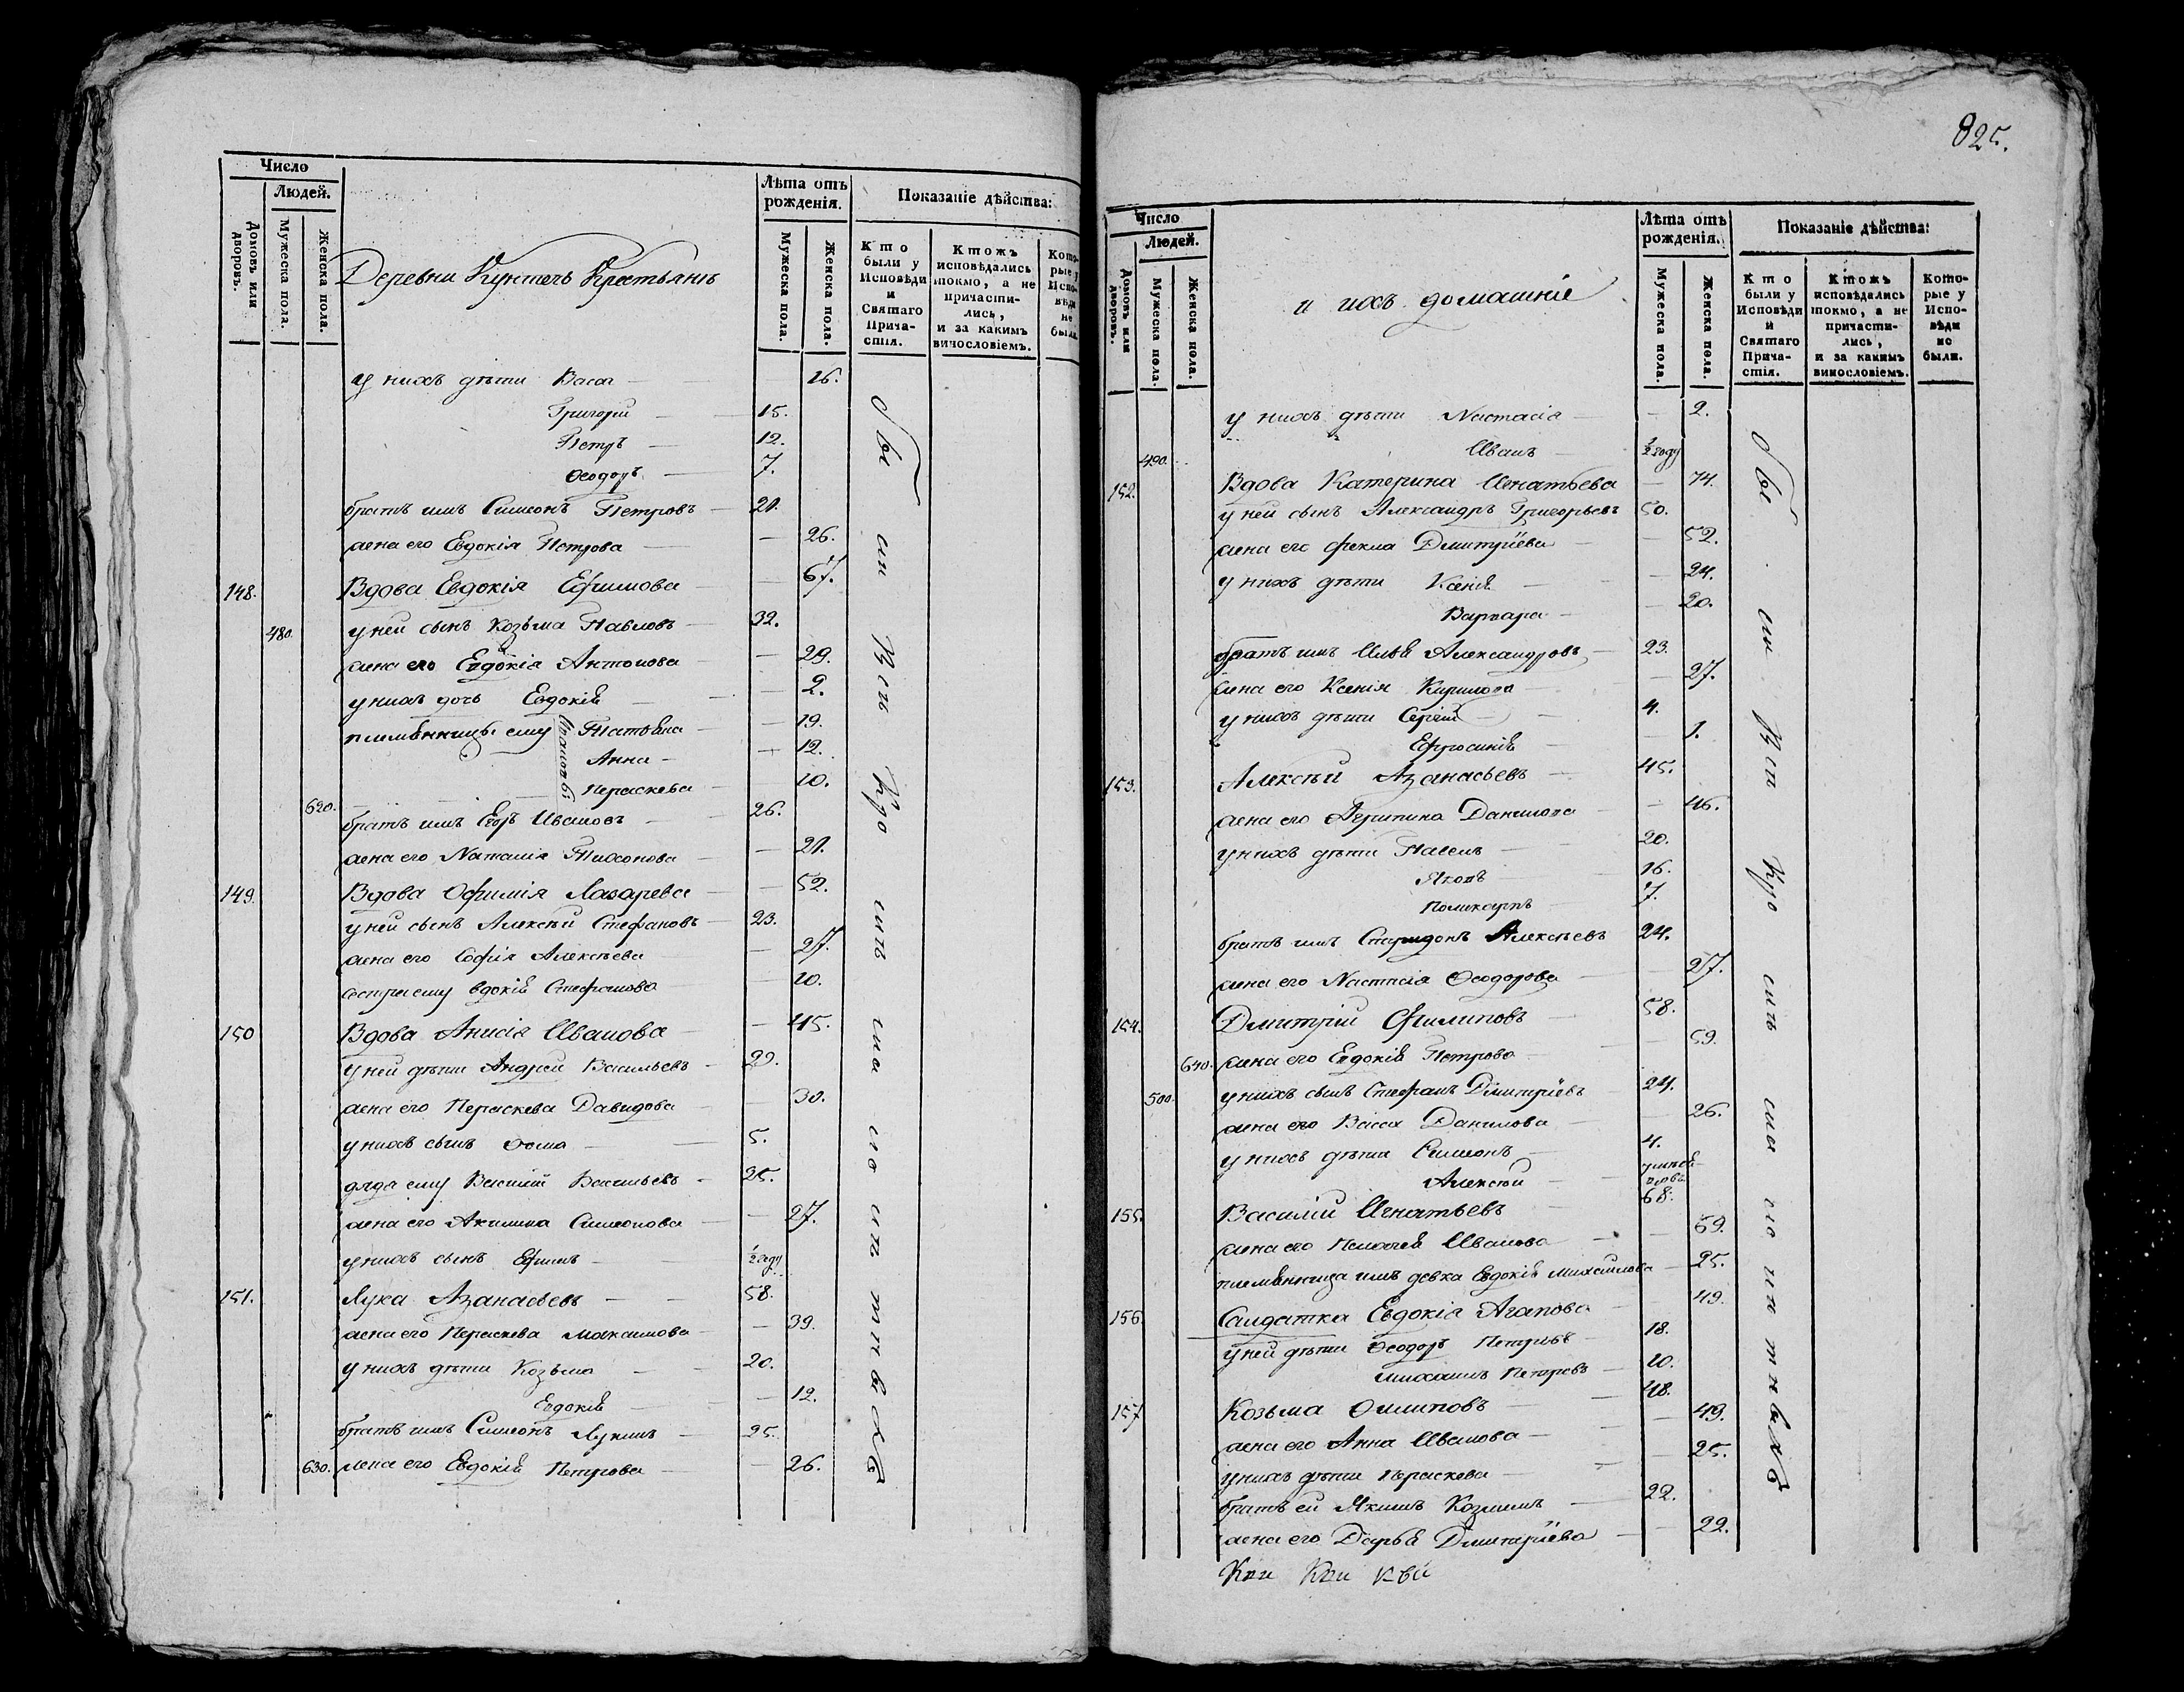 Число
Людей.
Домовъ или дворовъ.
Мужеска пола.
Женска пола.
Деревни Крестьянъ
Лѣта отъ рожденія.
Мужеска пола.
Женска пола.
Показаніе дѣйства:
Кто были у Исповѣди и Святаго Прича-стія.
Ктожъ исповѣдались токмо, а не причасти-лись, и за какимъ винословіемъ.
Кото-рые у Испо-вѣди не были.
у нихъ дѣти Васса — 16.
Григорій — 15.
Петръ — 12.
Ѳеодоръ — 7.
братъ имъ Симеонъ Петровъ — 21.
жена его Евдокія Петрова — 26.
148. Вдова Евдокія Ефимова — 67.
480. у ней сынъ Козьма Павловъ — 32.
жена его Евдокія Антонова — 29.
у нихъ дочь Евдокія — 2.
племянницы ему Татьяна — 19.
Анна — 12.
Пераскева — 10.
620. братъ имъ Егоръ Ивановъ — 26.
жена его Наталія Тихонова — 21.
149. Вдова Офимія Лазарева — 52.
у ней сынъ Алексѣй Стефановъ — 23.
жена его Софія Алексѣева — 27.
сестра ему Евдокія Стефанова — 10.
150 Вдова Анисія Иванова — 45.
у ней дѣти Андрей Васильевъ — 29.
жена его Пераскева Давидова — 30.
у нихъ сынъ Ѳома — 5.
дядя ему Василій Васильевъ — 25.
жена его Акилина Симеонова — 27.
у нихъ сынъ Ефимъ — ½ году
151. Лука Аѳанасьевъ — 58.
жена его Пераскева Максимова — 39.
у нихъ дѣти Козьма — 20.
Евдокія — 12.
братъ имъ Симеонъ Лукинъ — 25.
630. жена его Евдокія Петрова — 26.
825.
Число
Людей.
Домовъ или дворовъ.
Мужеска пола.
Женска пола.
и ихъ домашніе
Лѣта отъ рожденія.
Мужеска пола.
Женска пола.
Показаніе дѣйства:
Кто были у Исповѣди и Святаго Прича-стія.
Ктожъ исповѣдались токмо, а не причасти-лись, и за какимъ винословіемъ.
Кото-рые у Испо-вѣди не были.
у нихъ дѣти Настасія — 2.
490. Иванъ — ½ году
152. Вдова Катерина Игнатьева — 74.
у ней сынъ Александръ Григорьевъ 50.
жена его Фекла Дмитріева — 52.
у нихъ дѣти Ксенія — 24.
Варвара — 20.
братъ имъ Илья Александровъ — 23.
жена его Ксенія Кирилова — 27.
у нихъ дѣти Сергій — 4.
Ефросинія — 1.
153. Алексѣй Аѳанасьевъ — 45.
жена его Агрипина Данилова — 46.
у нихъ дѣти Павелъ — 20.
Яковъ — 16.
Поликарпъ — 7.
братъ имъ Спиридонъ Алексѣевъ 24.
жена его Настасія Ѳеодорова — 27.
154. Дмитрій Филиповъ — 58.
640. жена его Евдокія Петрова — 59.
500. у нихъ сынъ Стефанъ Дмитріевъ 24.
жена его Васса Данилова — 26.
у нихъ дѣти Симеонъ — 4.
Алексѣй —
155. Василій Игнатьевъ — 68.
жена его Пелагея Иванова — 69.
племянница имъ девка Евдокія Михаилова — 25.
156. Салдатка Евдокія Агапова — 49.
у ней дѣти Ѳеодоръ Петровъ — 18.
Михаилъ Петровъ — 10.
157 Козьма Филиповъ — 48.
жена его Анна Иванова — 49.
у нихъ дѣти Пераскева — 25.
братъ ей Якимъ Козминъ — 22.
жена его Дарья Дмитріева — 22.